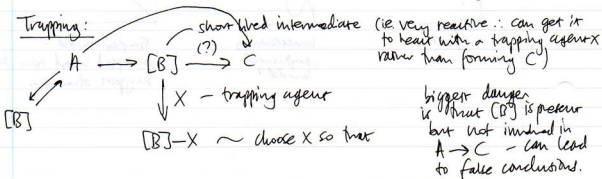 Trapping:
short lived intermediate
(i.e. very reactive ∴ can get it
to react with a trapping agent X
rather than forming C)
A → [B] (?) → C
[B]
X – trapping agent
[B]–X ~ choose X so that
biggest danger
is that [B] is present
but not involved in
A → C – can lead
to false conclusions.